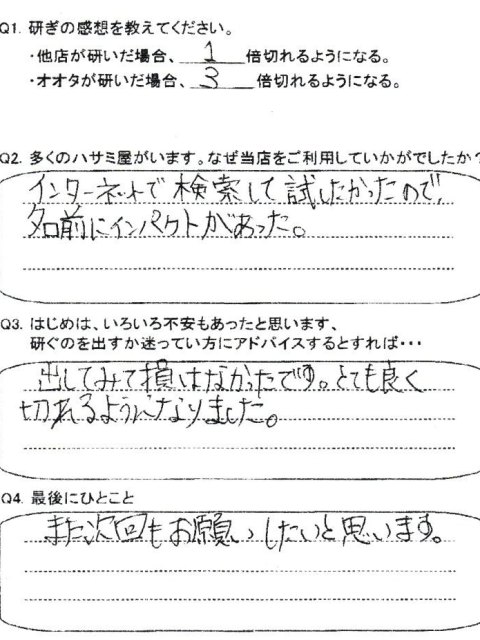 Q1. 研ぎの感想を教えてください。
・他店が研いだ場合、 1 倍切れるようになる。
・オオタが研いだ場合、 3 倍切れるようになる。
Q2. 多くのハサミ屋がいます。なぜ当店をご利用していかがでしたか?
インターネットで検索して試したかったので、
名前にインパクトがあった。
Q3. はじめは、いろいろ不安もあったと思います、
研ぐのを出すか迷ってい方にアドバイスするとすれば・・・
出してみて損はなかったです。とても良く
切れるようになりました。
Q4. 最後にひとこと
また次回もお願いしたいと思います。